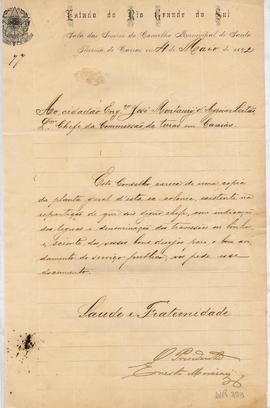 Estado do Rio Grande do Sul
Sala das Sessões do Conselho Municipal de Santa
Thereza de Caxias em 4 de Maio de 1892
77
Ao cidadão Engº José Montaury de Aguiar Leitão,
Dmo Chefe da Commissão de terras em Caxias
Este Conselho carece de uma copia
da planta geral d'esta ex colonia, existente na
repartição de que sois digno chefe, com indicação
das legoas e denominação dos travessões ou linhas
e sciente dos vossos bons desejos para o bom an-
damento do serviço publico, vos pede esse
documento.
Saude e Fraternidade
O Presidente
Ernesto